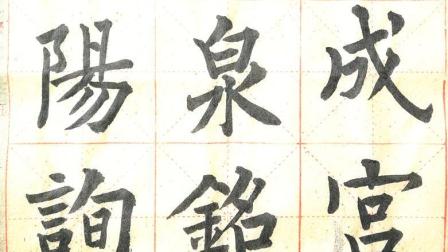 成宮
泉銘
陽詢